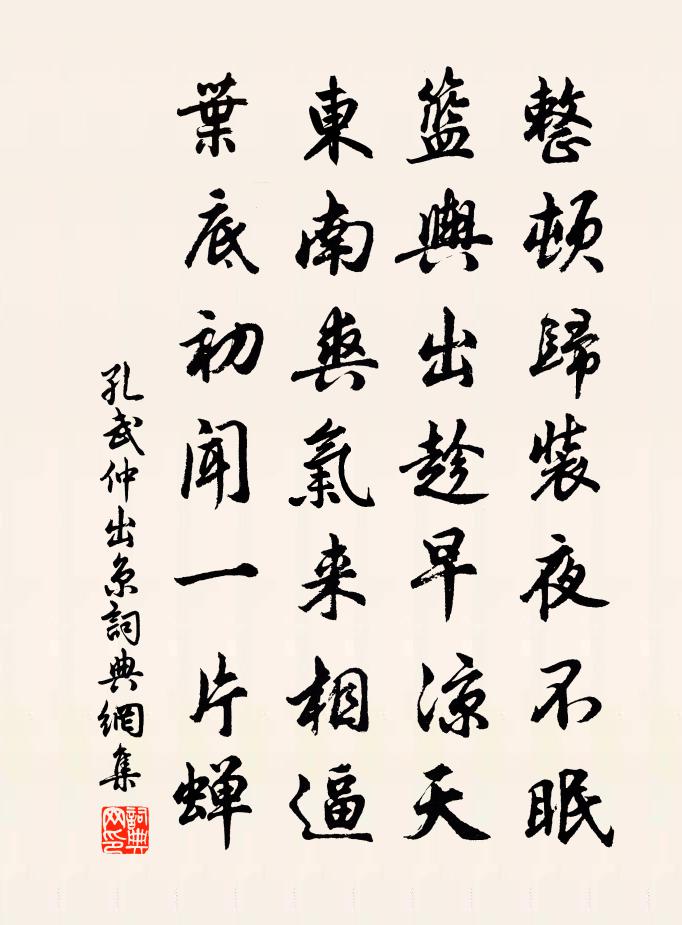 整頓歸裝夜不眠
籃輿出趁早涼天
東南爽氣來相逼
葉底初聞一片蟬
孔武仲出京詞典網集
詞典
网印